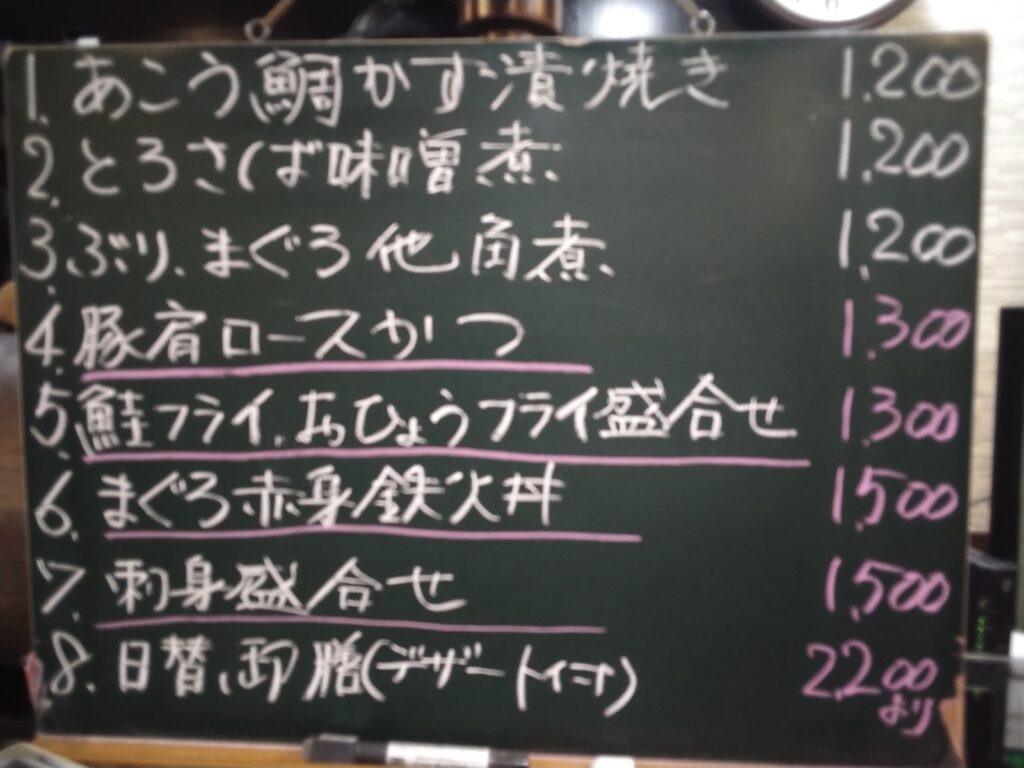 1. あこう鯛かす漬焼き 1,200
2. とろさば味噌煮 1,200
3. ぶり、まぐろ他角煮 1,200
4. 豚肩ロースかつ 1,300
5. 鮭フライ、おひょうフライ盛合せ 1,300
6. まぐろ赤身鉄火丼 1,500
7. 刺身盛合せ 1,500
8. 日替、御膳(デザート付) 2,200
より